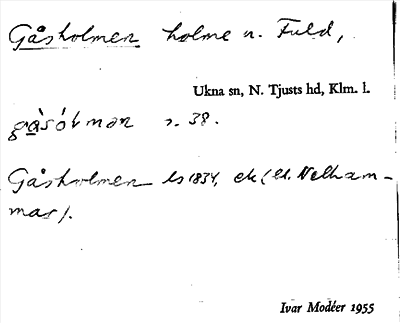 Gåsholmen holme n. Fuld,
Ukna sn, N. Tjusts hd, Klm. l.
gå̀sóləmən s. 38.
Gåsholmen ls 1834, ek (t. Valham-
mar).
Ivar Modéer 1955